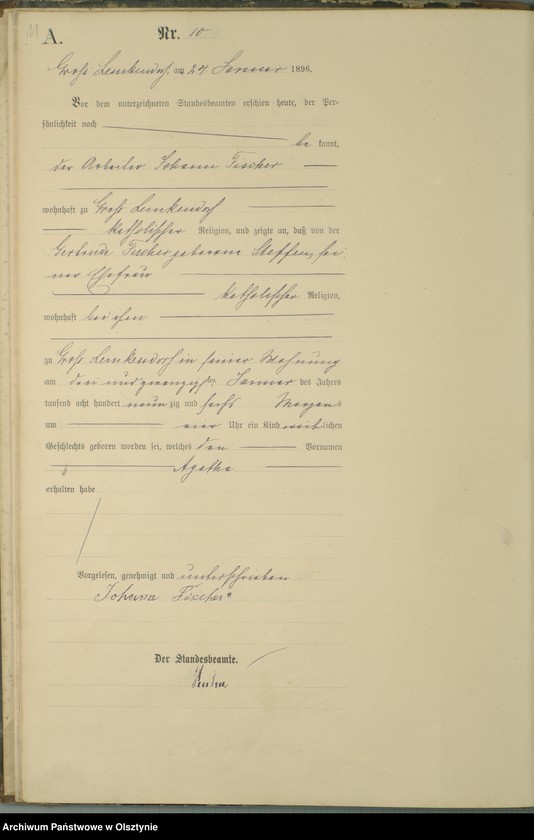 A.
Nr. 10
Groß Lemkendorf, am 24 Januar 1896.
Vor dem unterzeichneten Standesbeamten erschien heute, der Per-
sönlichkeit nach
be kannt,
der Arbeiter Johann Fischer
wohnhaft zu Groß Lemkendorf
katholischer Religion, und zeigte an, daß von der
Gertrude Fischer geborene Steffen, sei
ner Ehefrau
katholischer Religion,
wohnhaft bei ihm
zu Groß Lemkendorf in seiner Wohnung
am drei und zwanzigsten Januar des Jahres
tausend acht hundert neun zig und sechs Morgens
um vier Uhr ein Kind weiblichen
Geschlechts geboren worden sei, welches den Vornamen
Agathe
erhalten habe
Vorgelesen, genehmigt und unterschrieben
Johann Fischer
Der Standesbeamte.
Archiwum Państwowe w Olsztynie